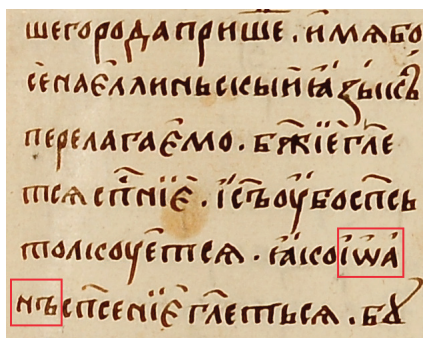 шегородаприше. имѧбо
се҆наєллиньскыйꙗ҆зыксъ
перелагає҆мо. бж҃иїєгл҃е
тсѧ сп҃нїє. і҆съоу҆босп҃сь
толкоує҆тсѧ. ꙗ҆коі҆ѡа҆
нъсп҃сенїє гл҃етьсѧ. бꙋ